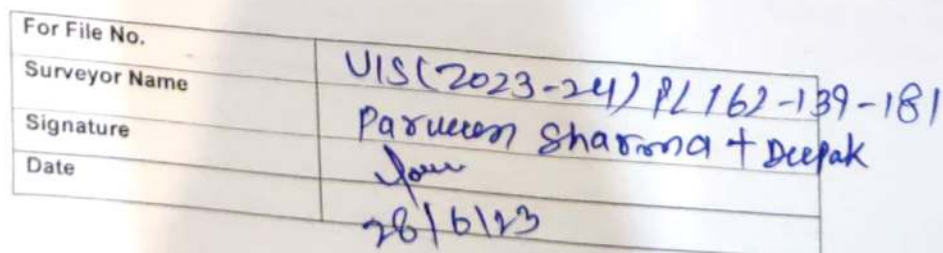 For File No. VIS(2023-24) PL162-139-181
Surveyor Name Parveen Sharma + Deepak
Signature
Date 28/6/23